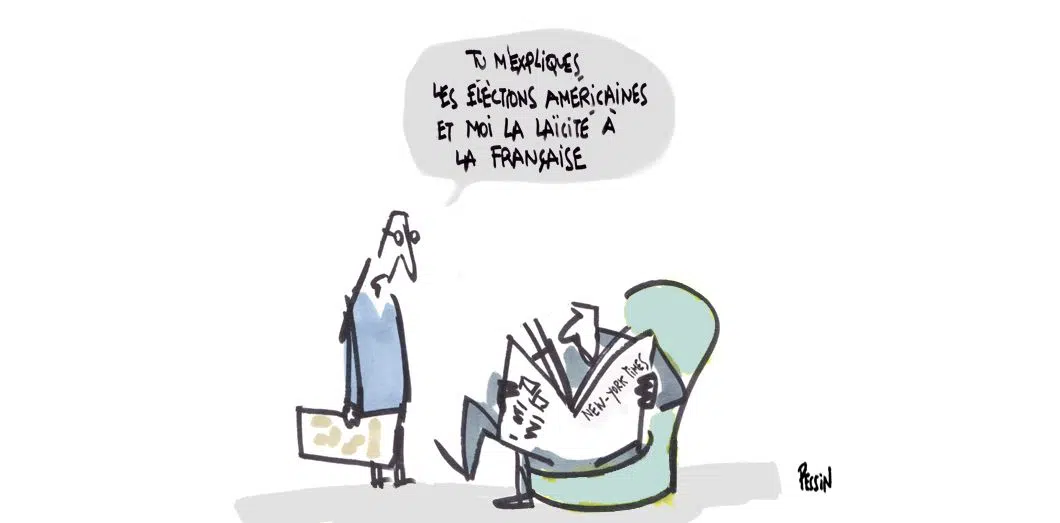 TU M'EXPLIQUES
LES ÉLÈCTIONS AMÉRICAINES
ET MOI LA LAÏCITÉ À
LA FRANÇAISE
NEW-YORK TIMES
PESSIN